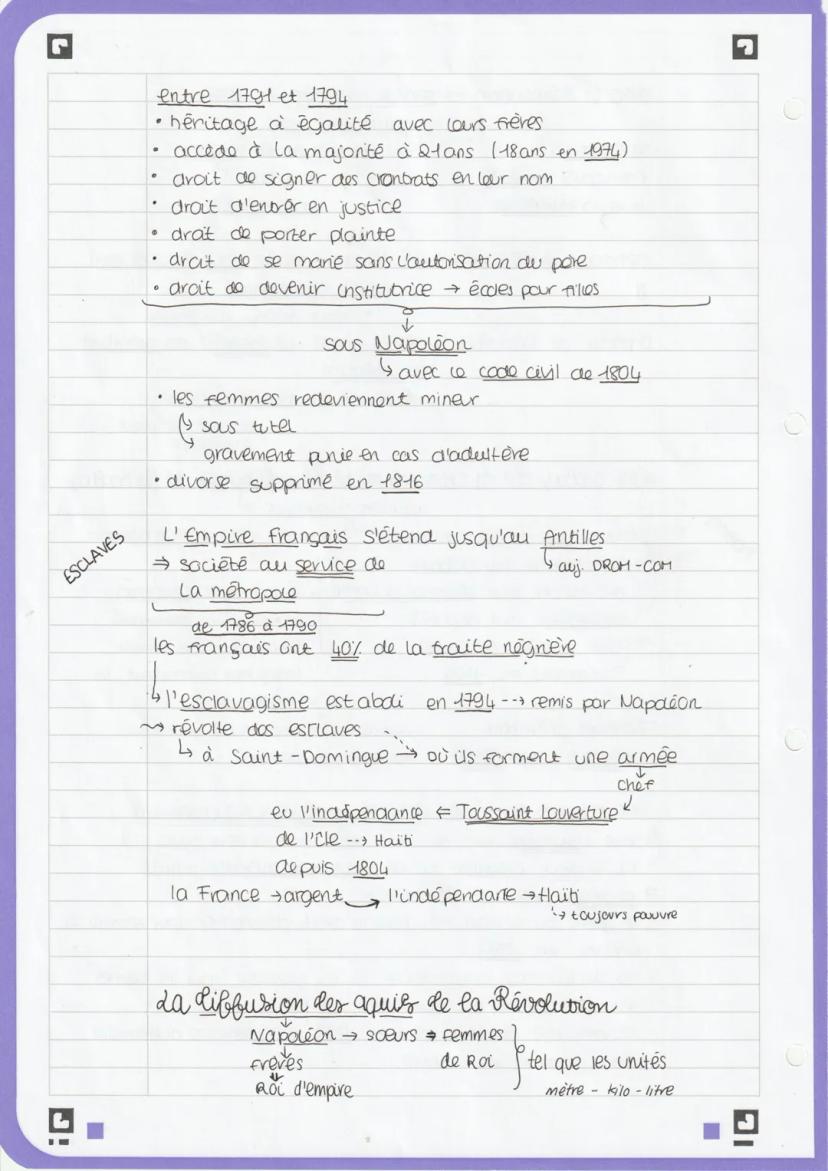 entre 1791 et 1794
• héritage à égalité avec leurs frères
• accède à la majorité à 21ans (18ans en 1974)
• droit de signer des contrats en leur nom
• droit d'entrer en justice
• droit de porter plainte
• droit de se marié sans l'autorisation du père
• droit de devenir institutrice → écoles pour filles
↓
sous Napoléon
↳ avec le code civil de 1804
• les femmes redeviennent mineur
↳ sous tutel
↳ gravement punie en cas d'adultère
• divorse supprimé en 1816
ESCLAVES
L'Empire Français s'étend jusqu'au Antilles
⇒ société au service de ↳ auj. DROM-COM
la métropole
de 1786 à 1790
les français ont 40% de la traite négrière
↳ l'esclavagisme est aboli en 1794 --→ remis par Napoléon
⤳ révolte des esclaves
↳ à Saint-Domingue → où ils forment une armée
chef
eu l'indépendance ⇐ Toussaint Louverture
de l'île --→ Haïti
depuis 1804
la France → argent → l'indépendance → Haïti
↳ toujours pauvre
La diffusion des aquis de la Révolution
Napoléon → sœurs ⇒ femmes
frères de Roi } tel que les unités
Roi d'empire mètre - kilo - litre